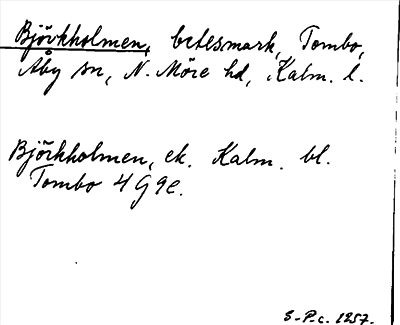 Björkholmen, betesmark, Tombo,
Åby sn, N. Möre hd, Kalm. l.
Björkholmen, ek. Kalm. bl.
Tombo 4 G 9 e.
S-P.c. 1957.